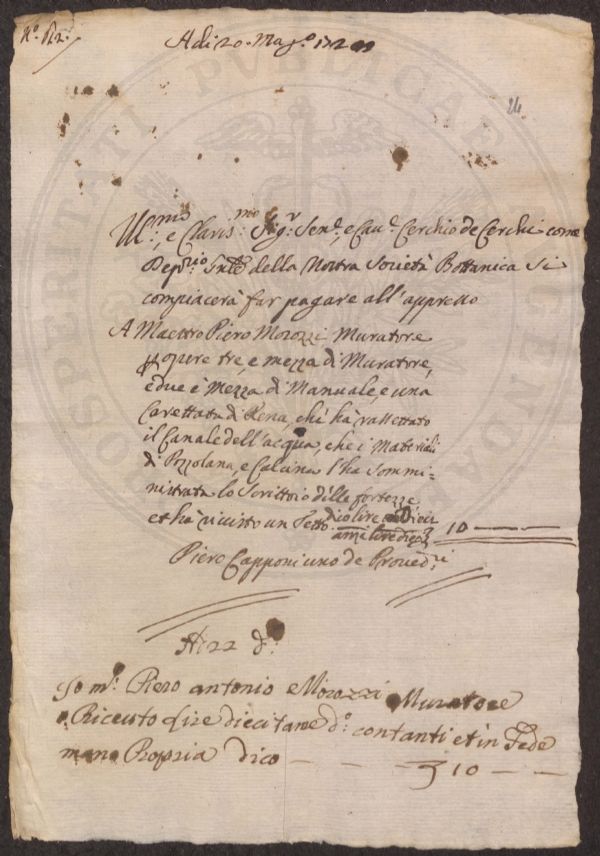 N.º 122.
Adi 20. Mag.º
24
Ill.mo, e Claris.mo Sig.r Sen.e, e Cau.e Cerchio de Cerchi come
Dep.rio della Nostra Società Bottanica Si
compiacerà far pagare all'appresso
A Maestro Piero Morozzi Muratore
p opere tre, e mezza di Muratore,
e due e Mezza di Manuale, e una
Carettata di Rena, che hà rassettato
il Canale dell'acqua, che i Materiali
di Pozzolana, e Calcina l'ha Sommi-
nistrata lo Scrittoio delle fortezze
et hà rivisto un Tetto dico lire Dieci 10 — —
Piero Capponi uno de Proued.ri
A di 22 d.º
Io m.º Piero antonio Morozzi Muratore
o Riceuto Lire dieci contanti et in Fede
mano Propria dico — — — 10 — —